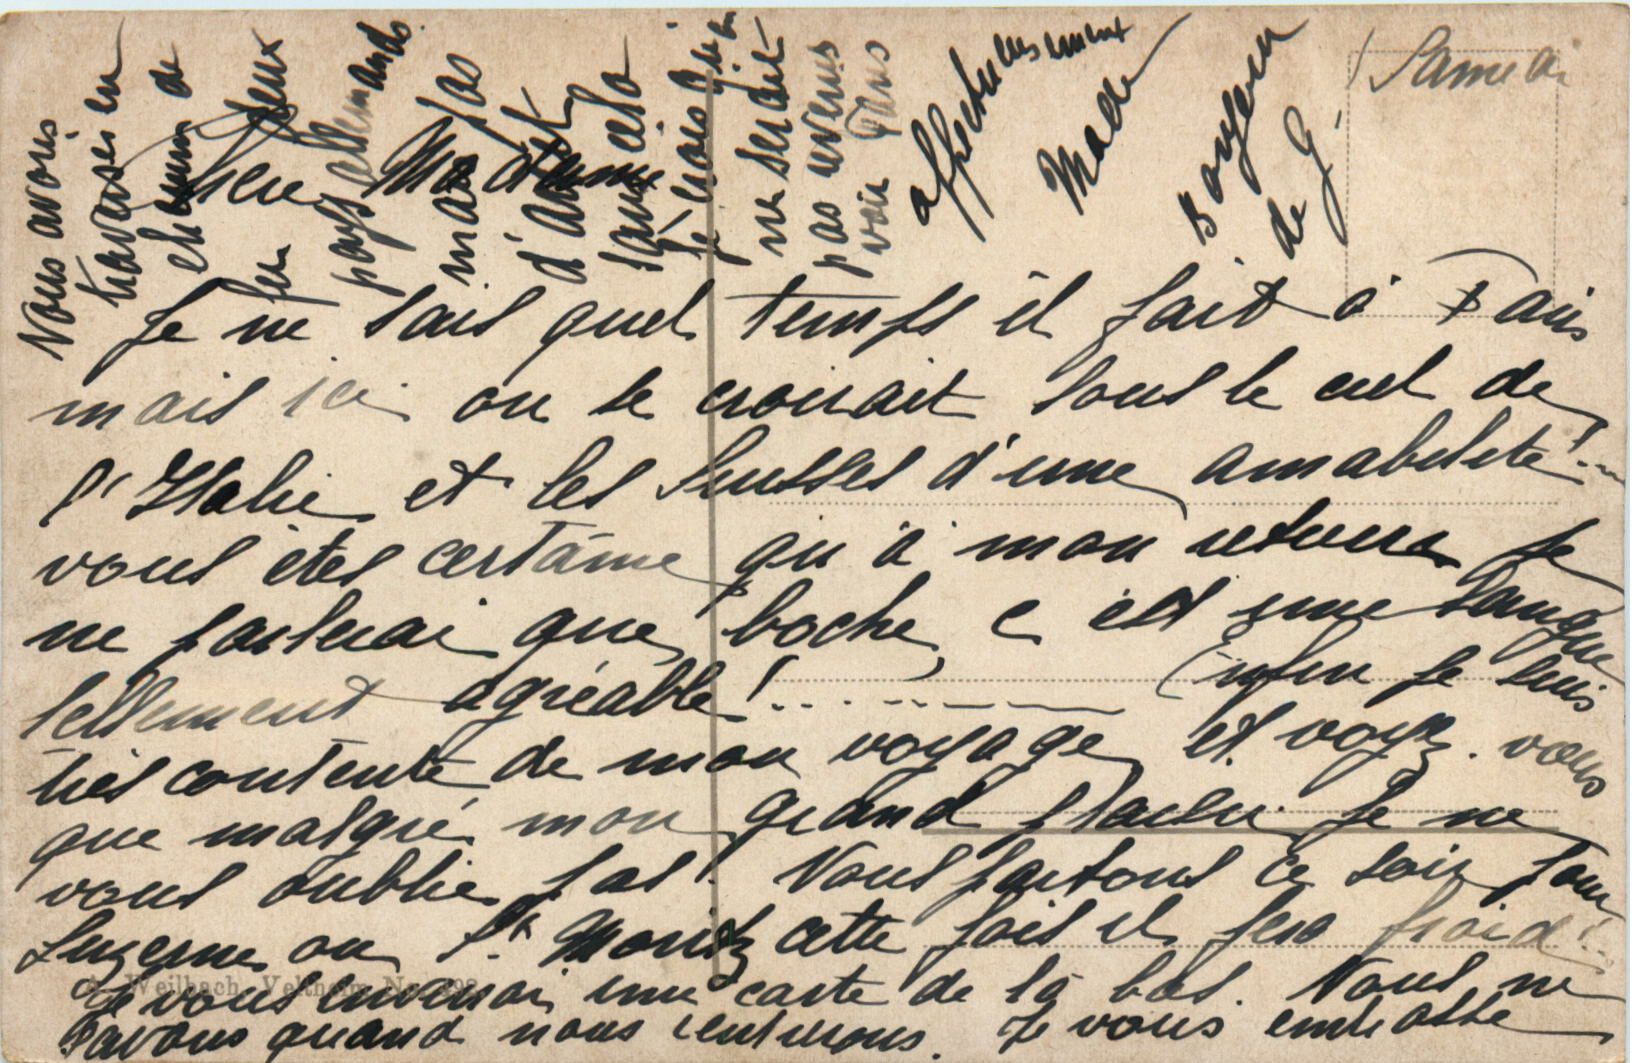 Samedi
Chere Madame
Je ne sais quel temps il fait à Paris
mais ici on se croirait sous le ciel de
l'Italie et les Suisses d'une amabilité!..
vous êtes certaine qu'à mon retour je
ne parlerai que boche, c'est une langue
tellement agréable!...... Enfin je suis
très contente de mon voyage, et voyez-vous
que malgré mon grand plaisir je ne
vous oublie pas! Nous partons ce soir pour
Luzerne ou St. Moritz cette fois il fera froid!..
Je vous enverrai une carte de là bas. Nous ne
savons quand nous rentrerons. Je vous embrasse
affectueusement
Made
Boyeur
de G.
Nous avons
traversé en
chemin de
fer
pays allemands
mais pas
d'arrêt
sans cela
Je crois que je
ne serait
pas revenus
voir Paris
A. Weilbach, Veltheim No. 392